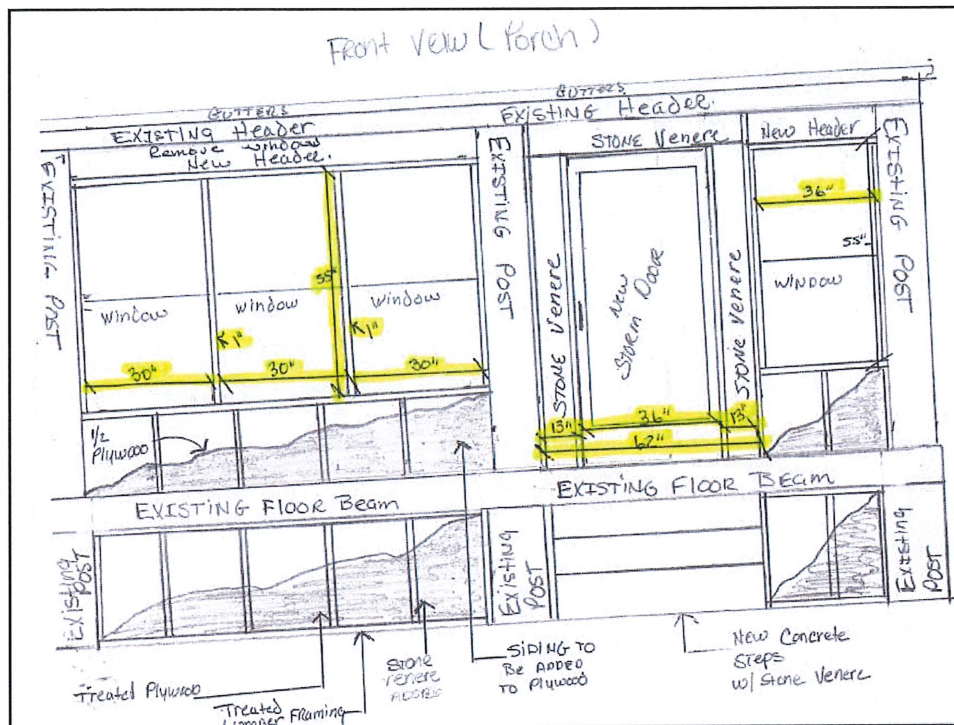 Front View (Porch)
GUTTERS
GUTTERS
EXISTING Header
EXISTING Header.
Remove Window
New Header.
STONE Venere
New Header
EXISTING POST
EXISTING POST
EXISTING POST
36"
55"
55"
window
window
window
WINDOW
STONE Venere
New
STORM DOOR
STONE Venere
1"
1"
30"
30"
30"
13"
36"
13"
62"
1/2
PLYWOOD
EXISTING FLOOR Beam
EXISTING FLOOR BEAM
Existing
POST
Existing
POST
Existing
POST
Treated Plywood
Treated
Lumber FRAMING
STONE
Venere
SIDING TO
Be ADDED
TO PLYWOOD
New Concrete
Steps
w/ Stone Venere